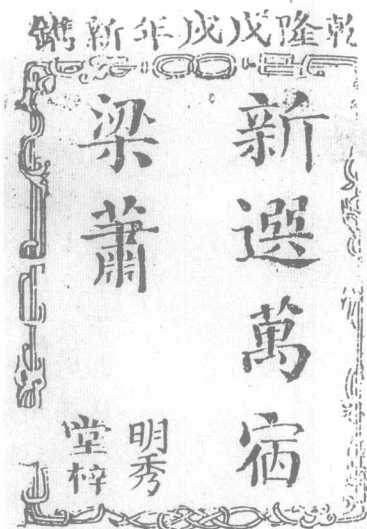 乾隆戊戌年新鐫
新選萬宿
梁蕭
明秀
堂梓